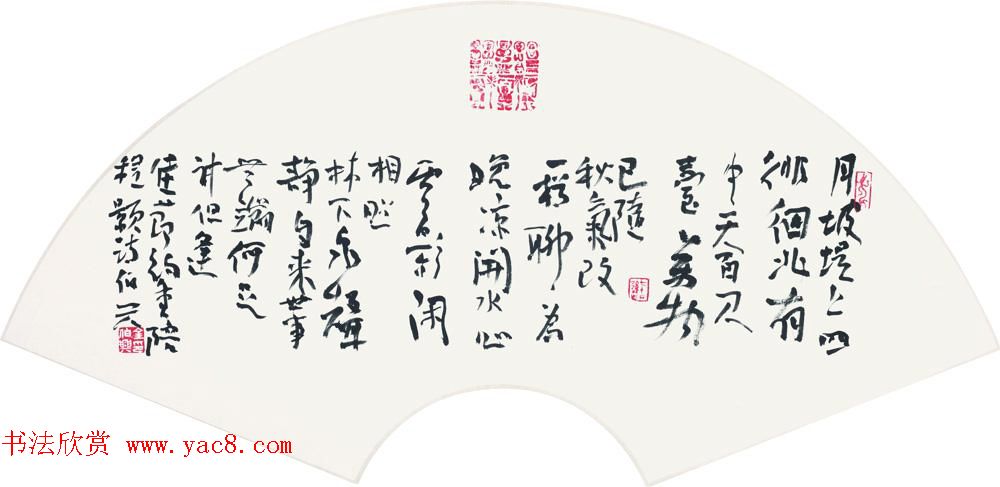 月坡堤上四
徘徊北有
中天百尺
臺萬物
已隨
秋氣改
一樽聊為
晚凉開水心
雲影闲
相照
林下泉聲
静自来世事
無端何足
计但逢
佳節約重陪
程颢诗伯兴
书法欣赏 www.yac8.com